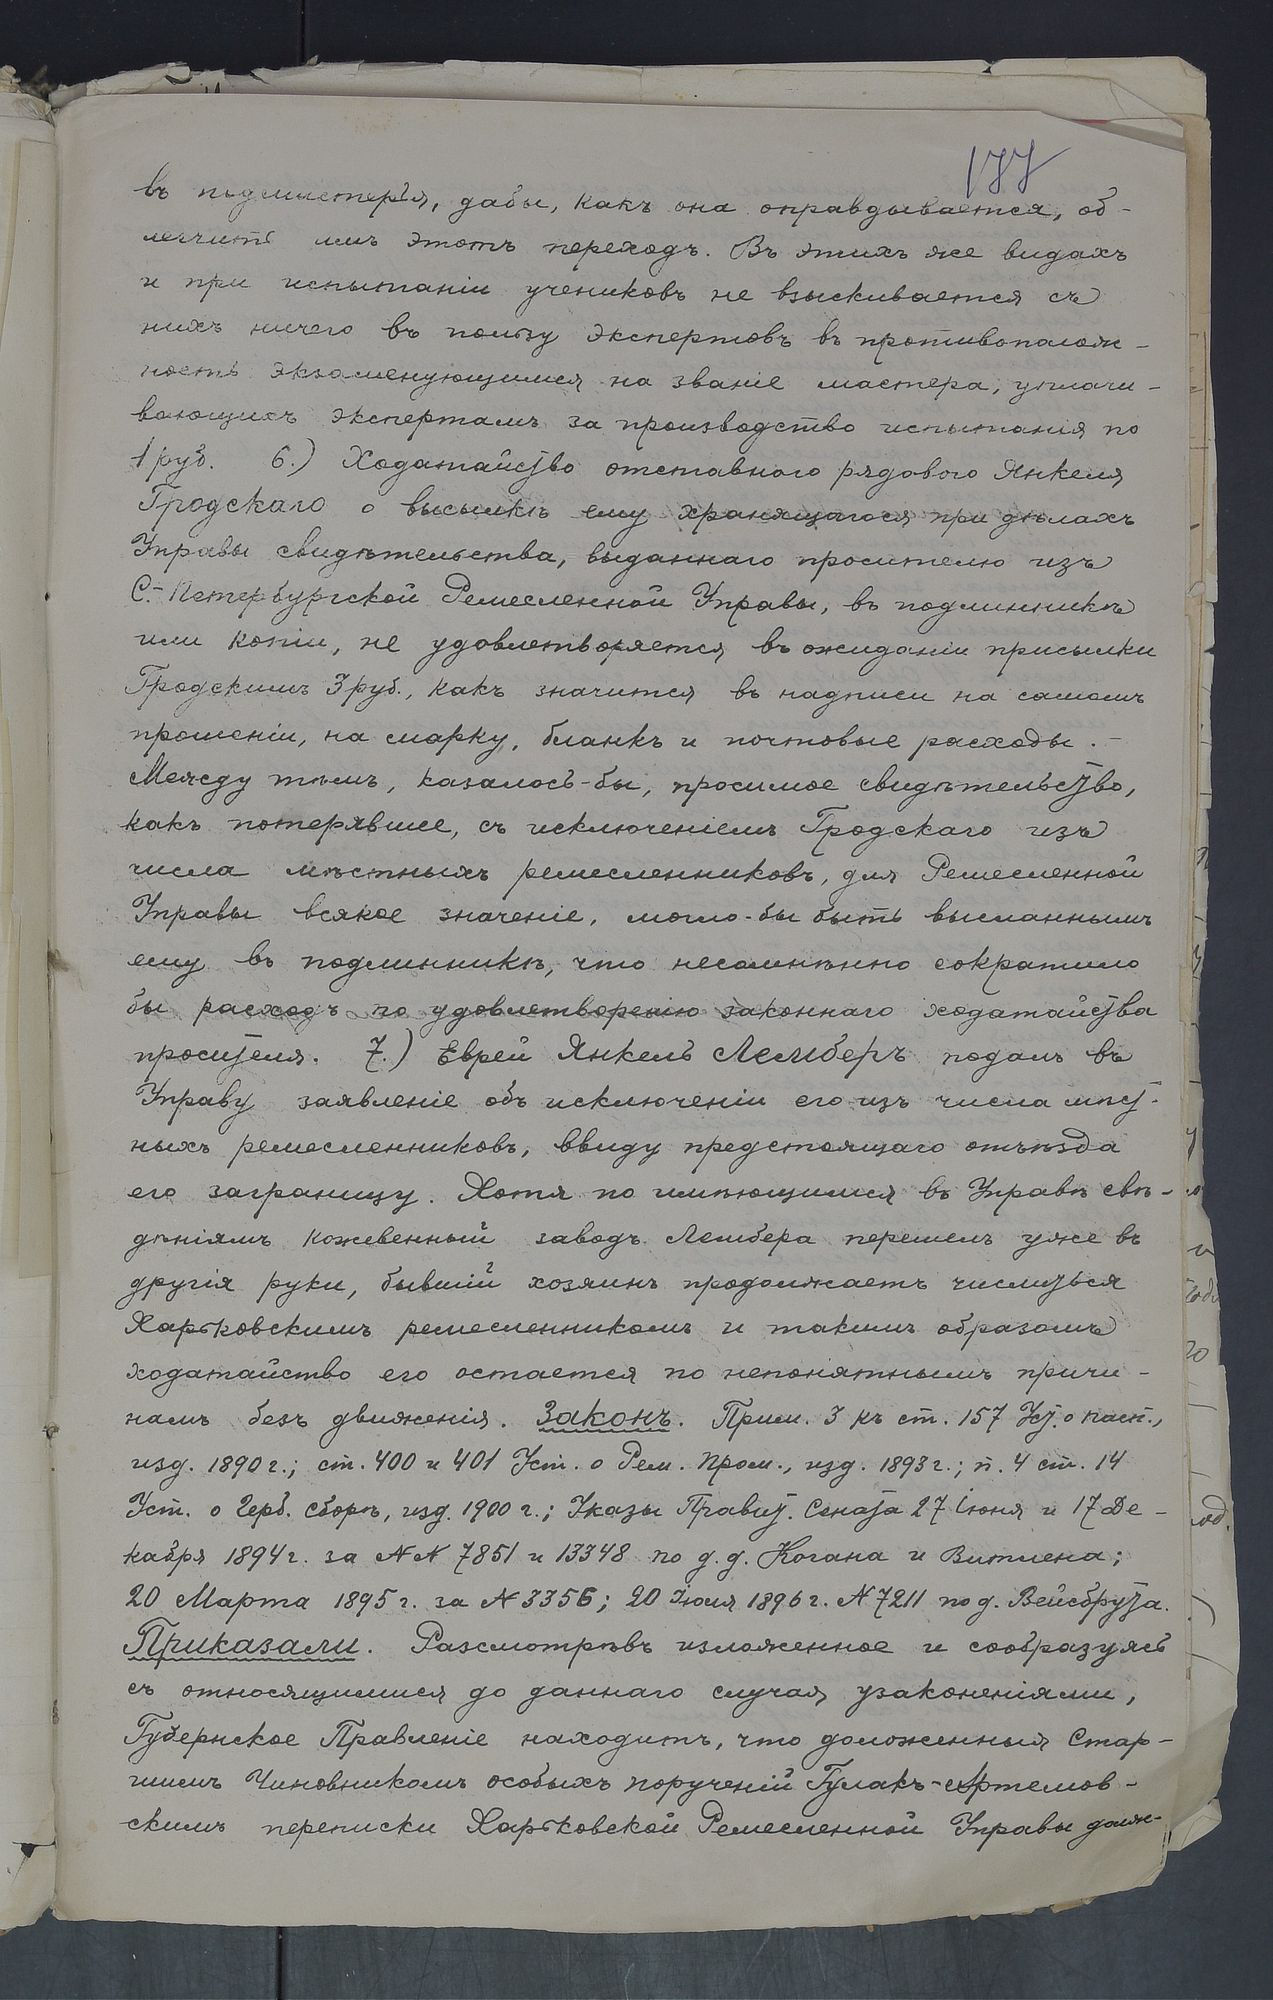 177
въ подмастерья, дабы, какъ она оправдывается, об-
легчить имъ этотъ переходъ. Въ этихъ же видахъ
и при испытаніи учениковъ не взыскивается съ
нихъ ничего въ пользу экспертовъ въ противополож-
ность экзаменующимся на званіе мастера, уплачи-
вающихъ экспертамъ за производство испытанія по
1 руб. 6.) Ходатайство отставного рядового Янкеля
Гродскаго о высылкѣ ему хранящагося при дѣлахъ
Управы свидѣтельства, выданнаго просителю изъ
С.-Петербургской Ремесленной Управы, въ подлинникѣ
или копіи, не удовлетворяется въ ожиданіи присылки
Гродскимъ 3 руб., какъ значится въ надписи на самомъ
прошеніи, на марку, бланкъ и почтовые расходы.-
Между тѣмъ, казалось-бы, просимое свидѣтельство,
какъ потерявшее, съ исключеніемъ Гродскаго изъ
числа мѣстныхъ ремесленниковъ, для Ремесленной
Управы всякое значеніе, могло-бы быть высланнымъ
ему въ подлинникѣ, что несомнѣнно сократило
бы расходъ по удовлетворенію законнаго ходатайства
просителя. 7.) Еврей Янкель Лемберъ подалъ въ
Управу заявленіе объ исключеніи его изъ числа мѣст-
ныхъ ремесленниковъ, ввиду предстоящаго отъѣзда
его заграницу. Хотя по имѣющимся въ Управѣ свѣ-
дѣніямъ кожевенный заводъ Лембера перешелъ уже въ
другія руки, бывшій хозяинъ продолжаетъ числиться
Харьковскимъ ремесленникомъ и такимъ образомъ
ходатайство его остается по непонятнымъ причи-
намъ безъ движенія. Законъ. Прим. 3 къ ст. 157 Уст. о пасп.,
изд. 1890 г.; ст. 400 и 401 Уст. о Рем. Пром., изд. 1893 г.; п. 4 ст. 14
Уст. о Герб. Сборѣ, изд. 1900 г.; Указы Правит. Сената 27 Іюня и 17 Де-
кабря 1894 г. за №№ 7851 и 13348 по д.д. Когана и Витлена;
20 Марта 1895 г. за № 3356; 20 Іюля 1896 г. № 7211 по д. Вейсбрута.
Приказали. Разсмотрѣвъ изложенное и сообразуясь
съ относящимися до даннаго случая узаконеніями,
Губернское Правленіе находитъ, что доложенныя Стар-
шимъ Чиновникомъ особыхъ порученій Гулакъ-Артемов-
скимъ переписки Харьковской Ремесленной Управы долж-